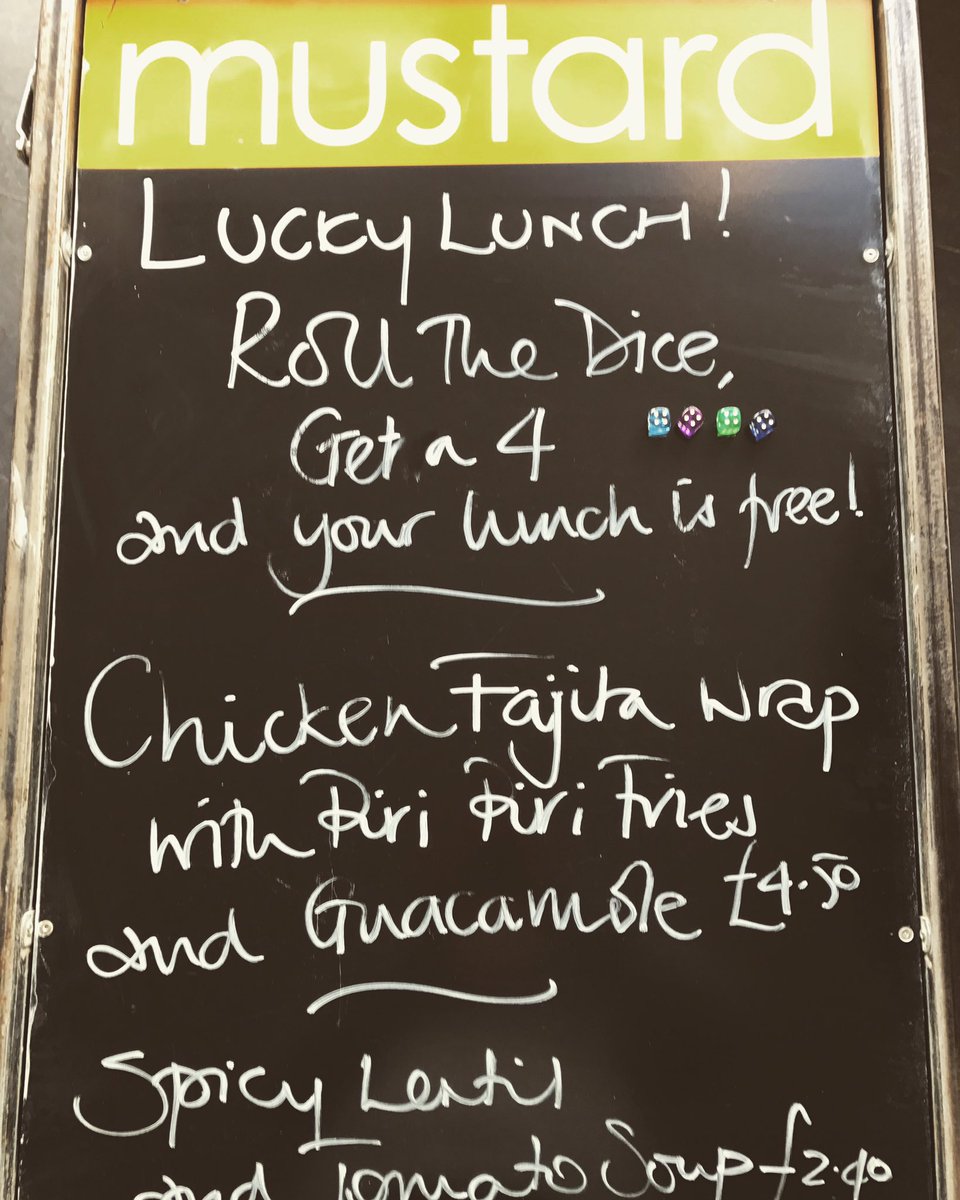 mustard
LUCKY LUNCH!
Roll The Dice,
Get a 4
and your lunch is free!
Chicken Fajita Wrap
with Piri Piri Fries
and Guacamole £4.50
Spicy Lentil
and Tomato Soup £2.40